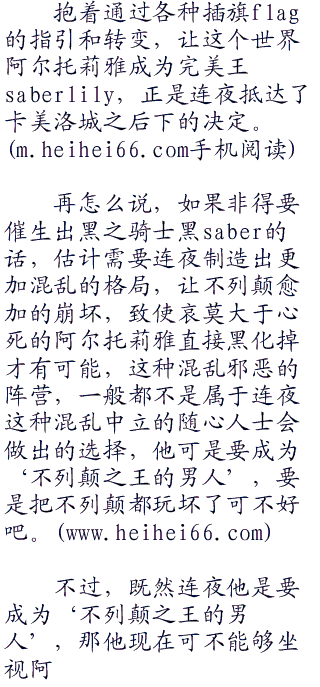 抱着通过各种插旗flag
的指引和转变，让这个世界
阿尔托莉雅成为完美王
saberlily，正是连夜抵达了
卡美洛城之后下的决定。
(m.heihei66.com手机阅读)
再怎么说，如果非得要
催生出黑之骑士黑saber的
话，估计需要连夜制造出更
加混乱的格局，让不列颠愈
加的崩坏，致使哀莫大于心
死的阿尔托莉雅直接黑化掉
才有可能，这种混乱邪恶的
阵营，一般都不是属于连夜
这种混乱中立的随心人士会
做出的选择，他可是要成为
‘不列颠之王的男人’，要
是把不列颠都玩坏了可不好
吧。(www.heihei66.com)
不过，既然连夜他是要
成为‘不列颠之王的男
人’，那他现在可不能够坐
视阿